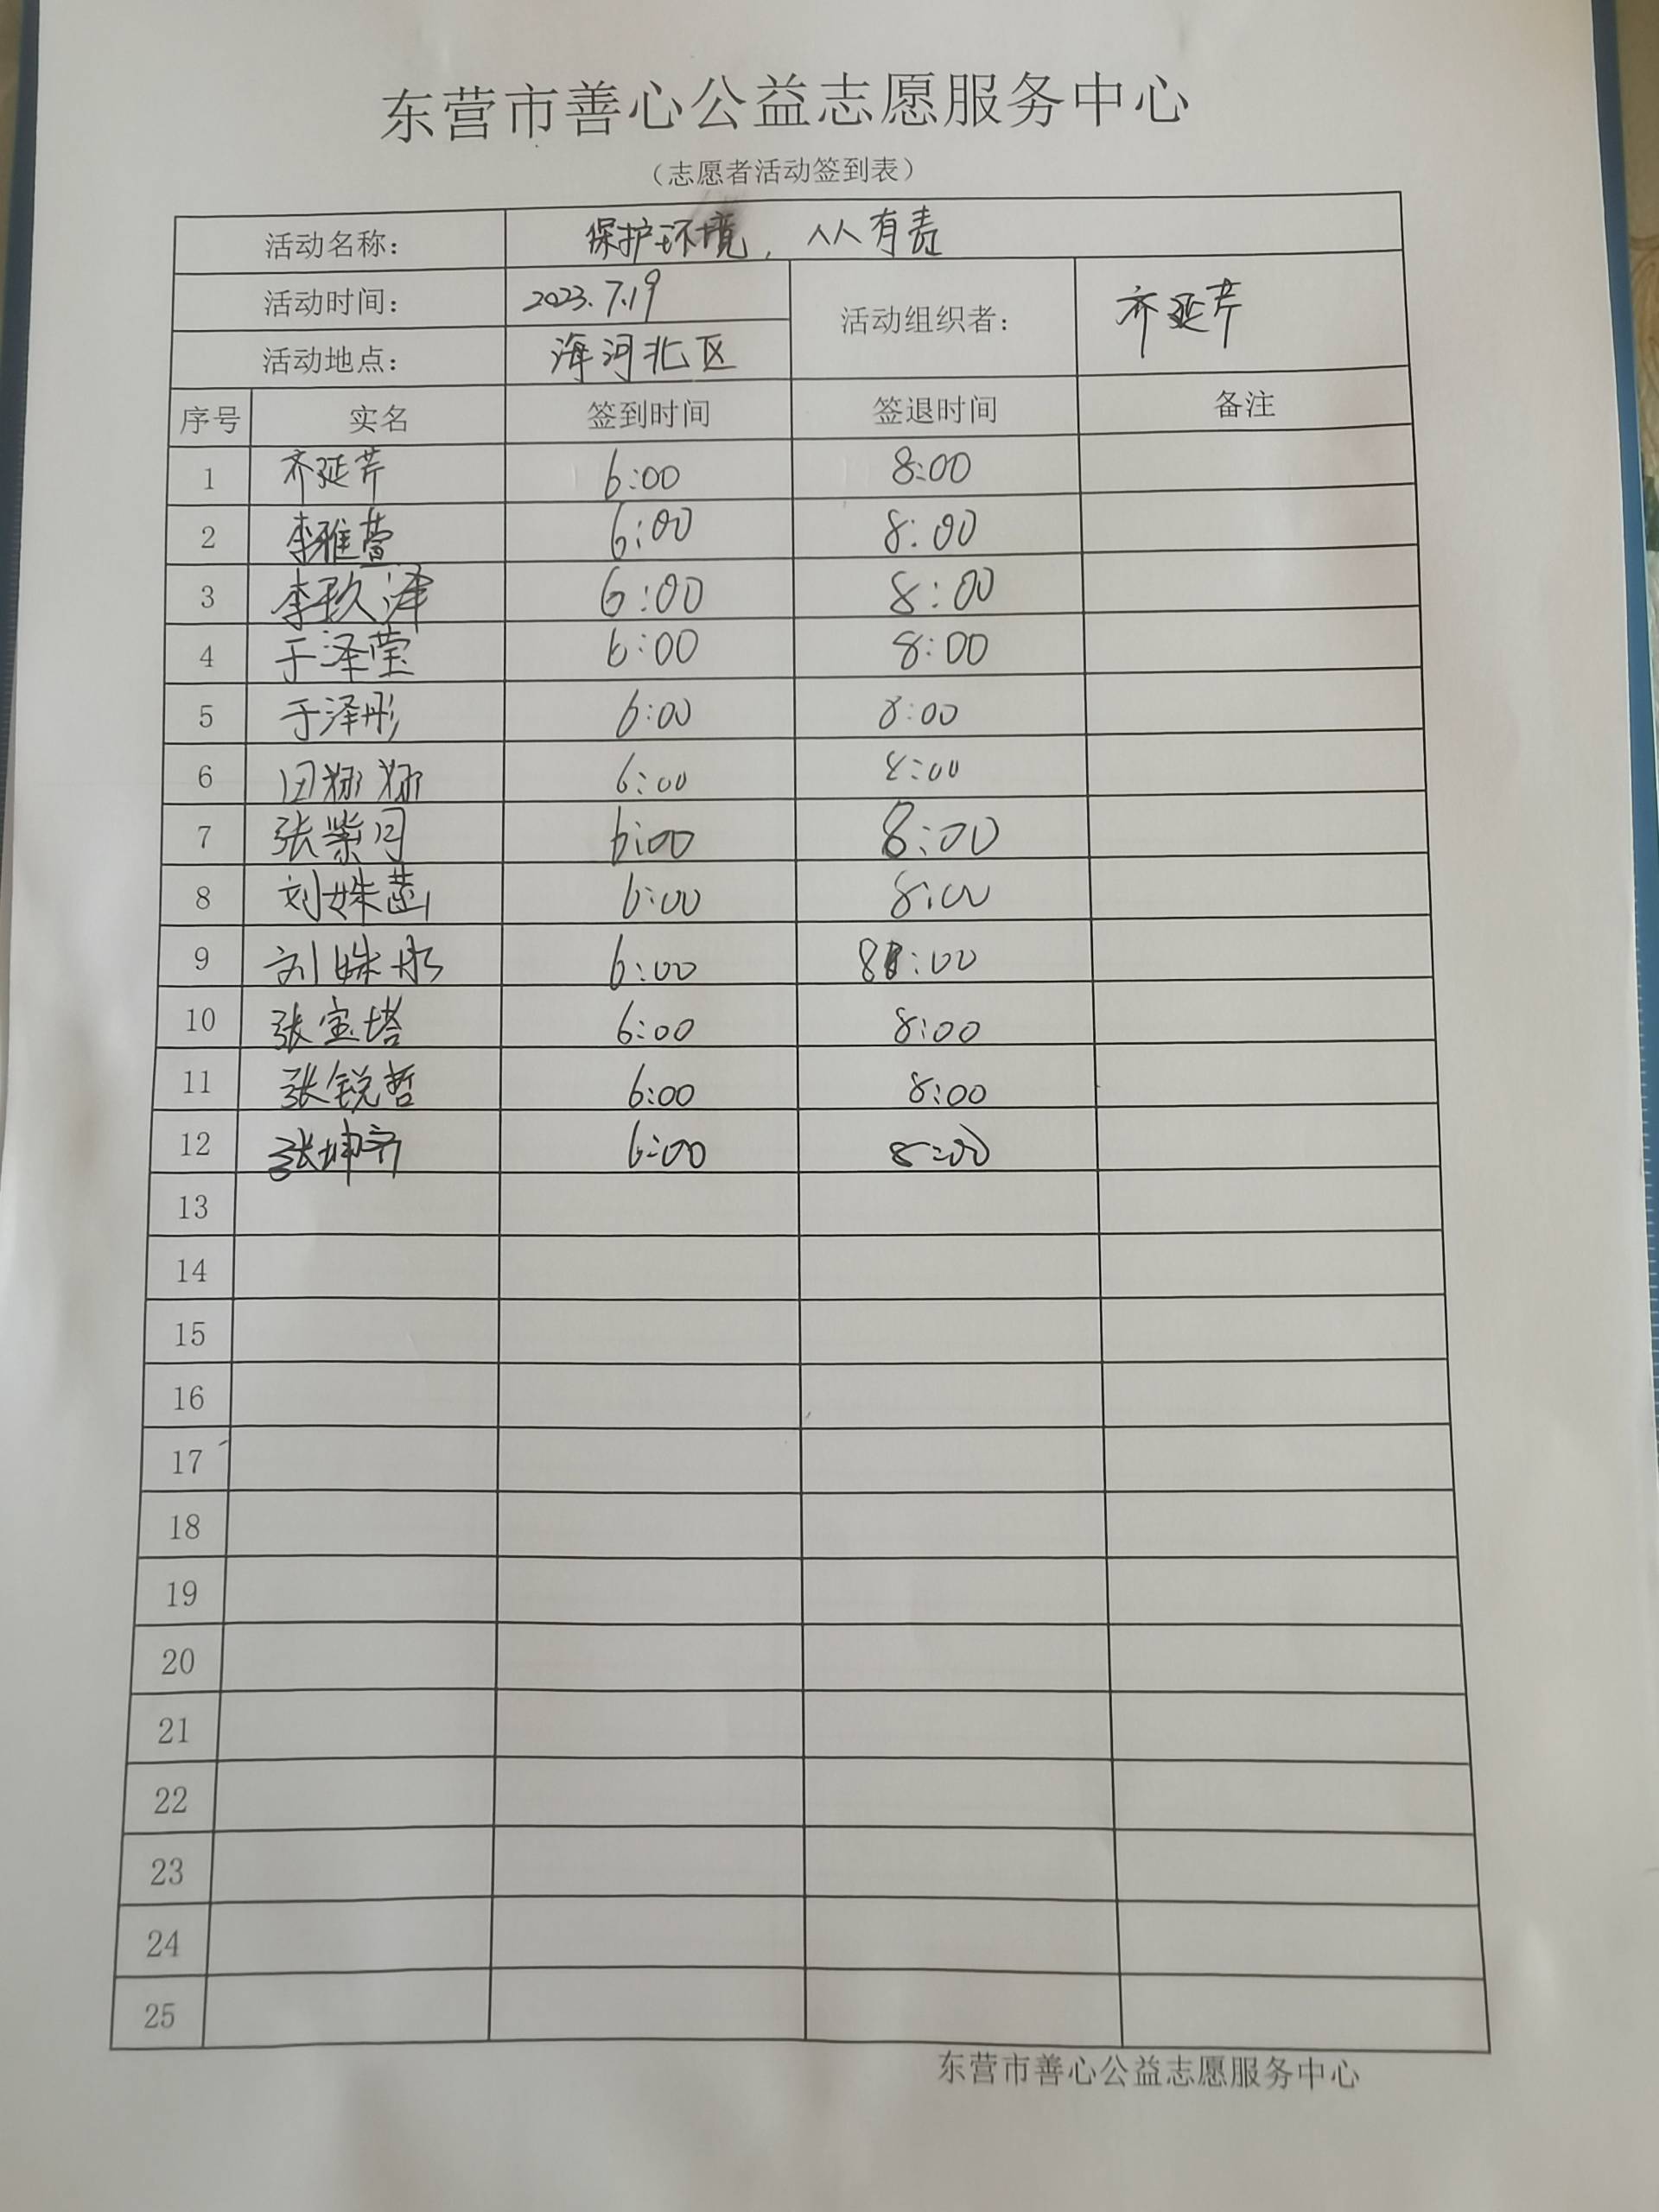 东营市善心公益志愿服务中心
（志愿者活动签到表）
活动名称： 保护环境，人人有责
活动时间： 2023.7.19 活动组织者： 齐延芹
活动地点： 海河北区
序号 实名 签到时间 签退时间 备注
1 齐延芹 6:00 8:00
2 李雅萱 6:00 8:00
3 李玖泽 6:00 8:00
4 于泽莹 6:00 8:00
5 于泽彤 6:00 8:00
6 田翔翔 6:00 8:00
7 张紫月 6:00 8:00
8 刘姝菡 6:00 8:00
9 刘姝彤 6:00 8:00
10 张宝塔 6:00 8:00
11 张锐哲 6:00 8:00
12 张坤齐 6:00 8:00
13
14
15
16
17
18
19
20
21
22
23
24
25
东营市善心公益志愿服务中心